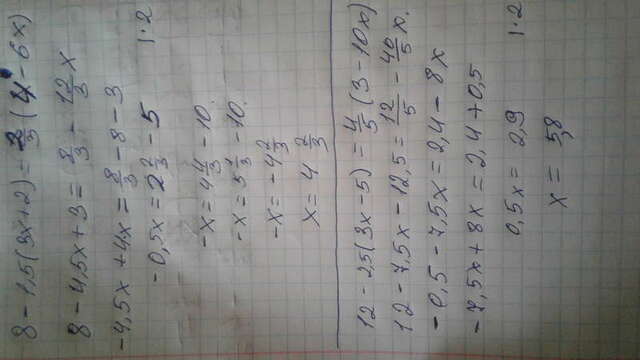 8 - 1,5(3x+2) = 2/3 (4 - 6x)
8 - 4,5x + 3 = 8/3 - 12/3 x
-4,5x + 4x = 8/3 - 8 - 3
-0,5x = 2 2/3 - 5 |·2
-x = 4 4/3 - 10.
-x = 5 1/3 - 10.
-x = -4 2/3
x = 4 2/3
12 - 25(3x-5) = 4/5 (3 - 10x)
12 - 7,5x - 12,5 = 12/5 - 40/5 x.
-0,5 - 7,5x = 2,4 - 8x
-7,5x + 8x = 2,4 + 0,5
0,5x = 2,9 |·2
x = 5,8